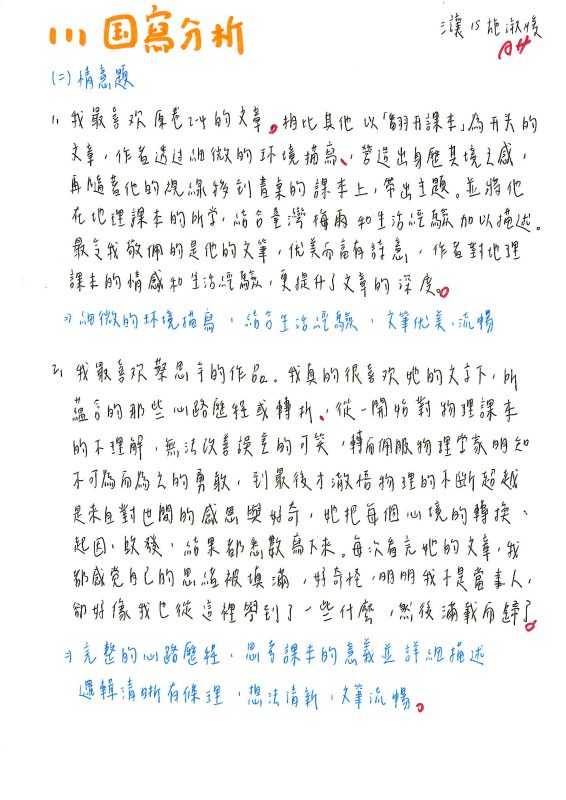 (1) 国寫分析
三讓 15 施淑媛
A+
(二) 情意題
1、我最喜欢原卷2-4的文章。相比其他以「翻开課本」為开头的
文章，作者透过細微的环境描寫，營造出身歷其境之感，
再隨著他的視線移到書桌的課本上，帶出主題。並將他
在地理課本的所學，結合臺灣梅雨和生活經驗加以描述。
最令我敬佩的是他的文筆，优美而富有詩意，作者對地理
課本的情感和生活經驗，更提升了文章的深度。
⇒ 細微的环境描寫、結合生活經驗、文筆优美、流暢
2、我最喜欢蔡思今的作品。我真的很喜欢她的文字下，所
蘊含的那些心路歷程或轉折，從一開始對物理課本
的不理解，無法改善誤差的可笑，轉而佩服物理学家明知
不可為而為之的勇敢，到最後才澈悟物理的不斷超越
是來自對世間的感思與好奇，她把每個心境的轉換、
起因、啟發、結果都悉數寫下來。每次看完她的文章，我
都感觉自己的思緒被填滿，好奇怪，明明我不是當事人，
卻好像我也從這裡學到了一些什麼，然後滿載而歸了。
⇒ 完整的心路歷程、思考課本的意義並詳細描述
邏輯清晰有條理、想法清新、文筆流暢。